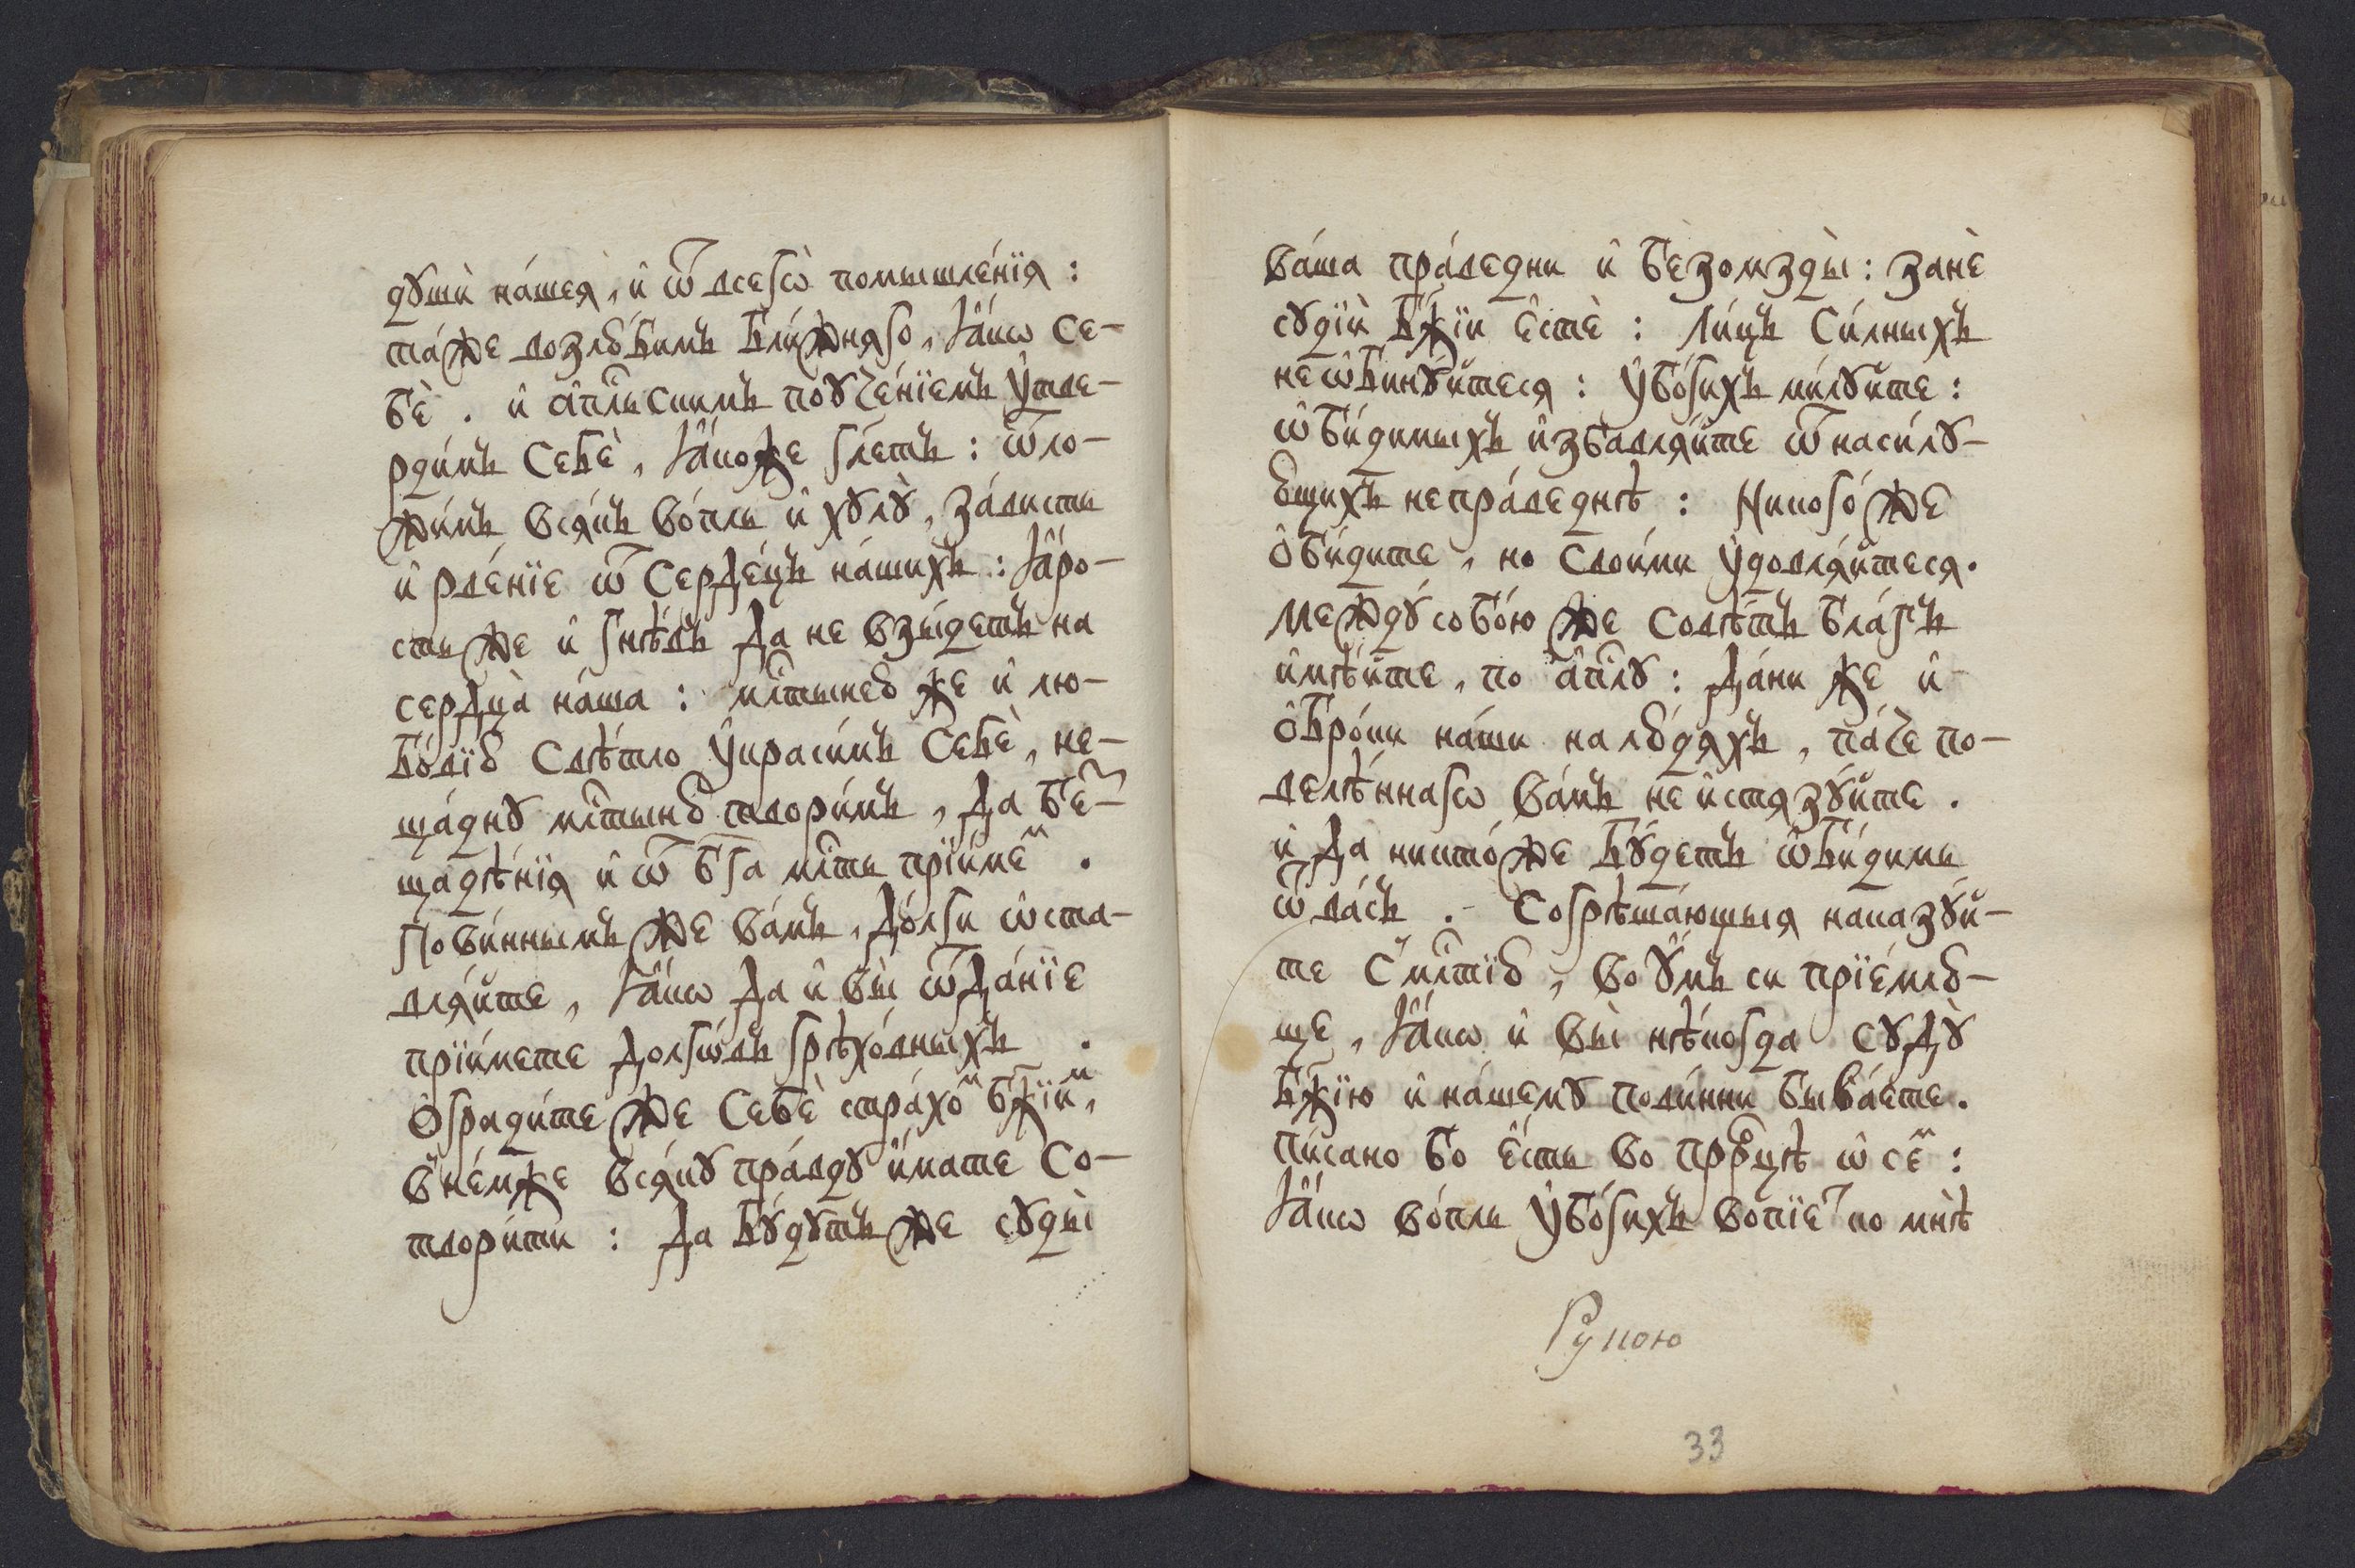 дꙋшѝ на́шеѧ̀, и҆ ѿ всегѡ̀ помышле́нїѧ :
та́же возлю́бимъ бли́жнѧго, ꙗ҆́кѡ се-
бѐ . и҆ а҆пⷭ҇льскимъ поꙋче́нїемъ ᲂу҆тве-
рди́мъ себѐ, ꙗ҆́коже гл҃етъ : ѿло-
жи́мъ всѧ́къ во́пль и҆ хꙋлꙋ̀, за́висть
и҆ рве́нїе ѿ серде́цъ на́шихъ : ꙗ҆́ро-
сть же и҆ гнѣ́въ да не взы́детъ на
сердца̀ на́ша : млⷭ҇тынею же и҆ лю-
бо́вїю свѣ́тло ᲂу҆краси́мъ себѐ, не-
ща́днꙋ млⷭ҇тыню твори́мъ, да бе-
щадѣ́нїѧ и҆ ѿ бг҃а млⷭ҇ть прїи́меᷨ .
Пови́ннымъ же ва́мъ, до́лги ѡ҆ста-
влѧ́йте, ꙗ҆́кѡ да и҆ вы̀ ѿда́нїе
прїи́мете долгѡ́въ грѣхо́вныхъ .
Ѻ҆гради́те же себѐ стра́хоᷨ бж҃їиᷨ,
в̾не́мже всѧ́кꙋ пра́вдꙋ и҆́мате со-
твори́ти : да бꙋ́дꙋтъ же сꙋды̀
ва́ша пра́ведни и҆ безомзды̀ : занѐ
сꙋдїѝ бж҃їи є҆стѐ : ли́цъ си́лныхъ
неѡ҆бинꙋ́йтесѧ : ᲂу҆бо́гихъ ми́лꙋйте :
ѡ҆би́димыхъ и҆збавлѧ́йте ѿ наси́лꙋ-
ющихъ непра́веднѣ : Никого́же
ѻ҆би́дите, но свои́ми ᲂу҆довлѧ́йтесѧ.
междꙋ́собо́ю же совѣ́тъ бла́гъ
и҆мѣ́йте, по а҆пⷭ҇лꙋ : да́ни же и҆
ѻ҆бро́ки на́ши на лю́дѧхъ, па́че по-
велѣ́ннагѡ ва́мъ не и҆стѧзꙋ́йте .
и҆ да никто́же бꙋ́детъ ѡ҆би́димь
ѿ ва́съ . Согрѣша́ющыѧ наказꙋ́й-
те с̾млⷭ҇тїю, во ᲂу҆́мъ си прїе́млю-
ще, ꙗ҆́кѡ и҆ вы̀ нѣ́когда сꙋдꙋ̀
бж҃їю и҆ на́шемꙋ пови́нни быва́ете.
пи́сано бо є҆́сть во прⷪ҇рцѣ ѡ҆ сеᷨ :
ꙗ҆́кѡ во́пль ᲂу҆бо́гихъ вопїеⷮ ко мнѣ̀
Рукою
33